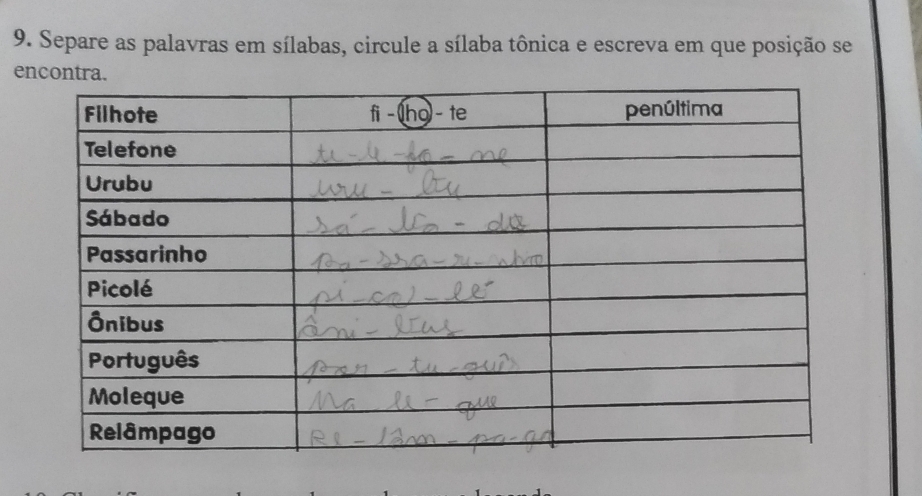 9. Separe as palavras em sílabas, circule a sílaba tônica e escreva em que posição se
encontra.
Filhote fi - lho - te penúltima
Telefone te - le - fo - ne
Urubu uru - bu
Sábado sá - ba - do
Passarinho pa - ssa - ri - nho
Picolé pi - co - lé
Ônibus ôni - bus
Português por - tu - guês
Moleque Mo le - que
Relâmpago Re - lâm - pa - go